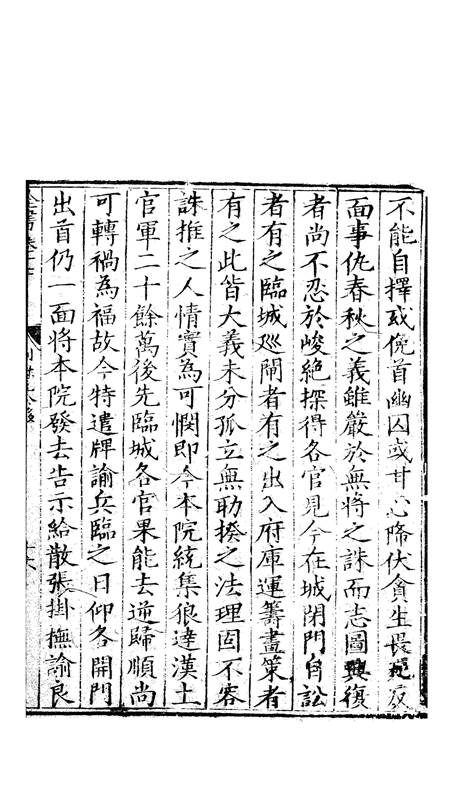 不能自擇或俛首幽囚或甘心降伏貪生畏死反
面事仇春秋之義雖嚴於無將之誅而志圖興復
者尚不忍於峻絕探得各官見今在城閉門自訟
者有之臨城巡閘者有之出入府庫運籌畫策者
有之此皆大義未分孤立無助揆之法理固不容
誅推之人情實為可憫即今本院統集狼達漢土
官軍二十餘萬後先臨城各官果能去逆歸順尚
可轉禍為福故今特遣牌諭兵臨之日仰各開門
出首仍一面將本院發去告示給散張掛撫諭良